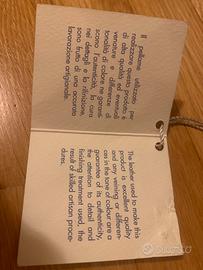 Il pellame utilizzato per
realizzare questo prodotto è
di alta qualità ed eventuali
venature e differenze di
tonalità di colore ne garanti-
scono l'autenticità, la cura
nei dettagli e la rifinizione,
sono frutto di una accurata
lavorazione artigianale.
The leather used to make this
product is excellent quality
and any veining or differen-
ces in the tone of colour are a
guarantee of its authenticity,
the attention to detail and
finishing treatment used, the
result of skilled artisan proce-
dures.
subito.it